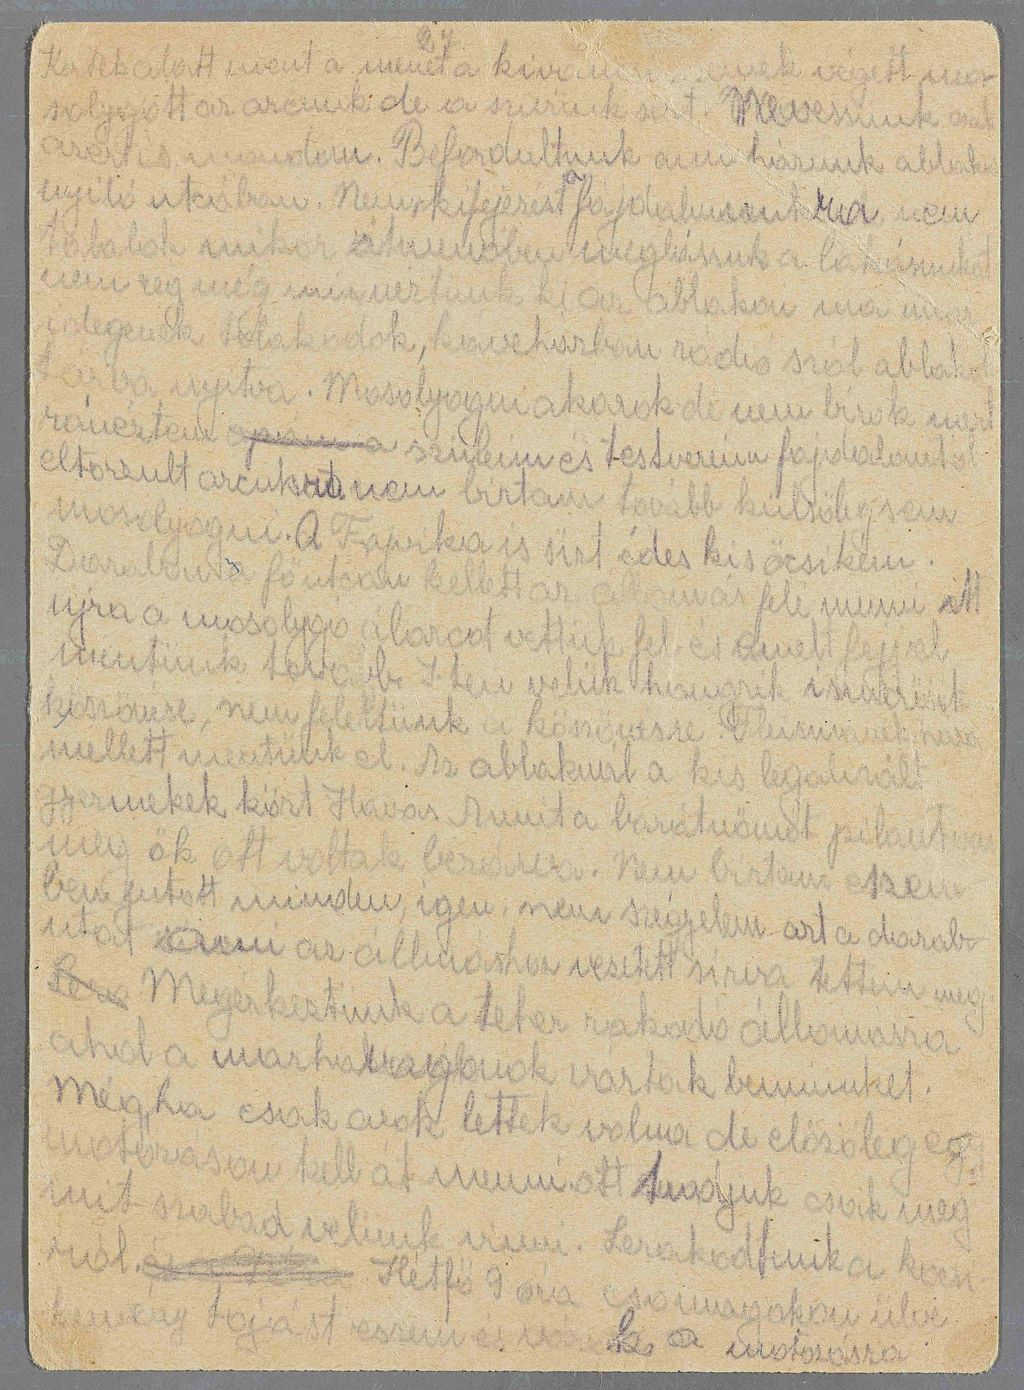 27
alatt ment a menet a végett mo-
solygott az arcunk de a szivünk sirt. Nevessünk csak
azért is mondtam. Befordultunk ami házunk ablaka
nyiló utcában. Nem kifejezést a fájdalmunkra nem
találok mikor átmenőben meglássuk a lakásunkat
nem rég még mi néztünk ki az ablakon ma már
idegenek kávéházban rádió szól ablakok
tárva nyitva. Mosolyogni akarok de nem birok mert
ránéztem szüleim és testvéreim fájdalomtól
eltorzult arcukra nem birtam tovább külsőleg sem
mosolyogni. A is sirt édes kis öcsikém.
Darabon a főutcán kellett az állomás felé menni itt
ujra a mosolygó álarcot vettük fel és emelt fejjel
mentünk tovább. Isten velük hangzik ismerősök
köszönése, nem feleltünk a köszönésre.
mellett mentünk el. Az ablaknál a kis
gyermekek közt Havas Annita barátnőmet pillantom
meg ők ott voltak bezárva. Nem birtam szem-
ben futott minden, igen, nem szégyelem azt a darab
utat ami az állomáshoz vezetett sirva tettem meg.
Megérkeztünk a teher rakodó állomásra
ahol a marhavagonok vártak bennünket.
Még ha csak azok lettek volna de előzőleg egy
motozáson kell át menni ott tudjuk csak meg
mit szabad velünk vinni. Lerakodtunk a kocsi-
ról. Hétfő 9 óra csomagokon ülve
kemény tojást eszem és a motozásra